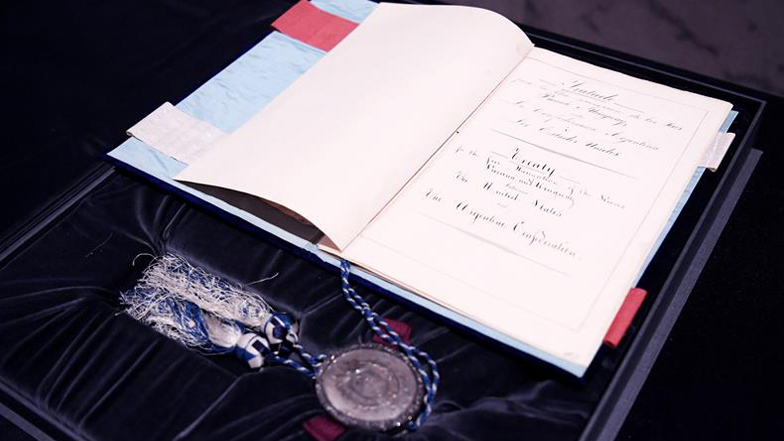 Tratado
para la navegacion de los Rios
Paraná y Uruguay
entre
La Confederacion Argentina
y
Los Estados Unidos
Treaty
for the free Navigation of the Rivers
Paraná and Uruguay
between
The United States
and
The Argentine Confederation